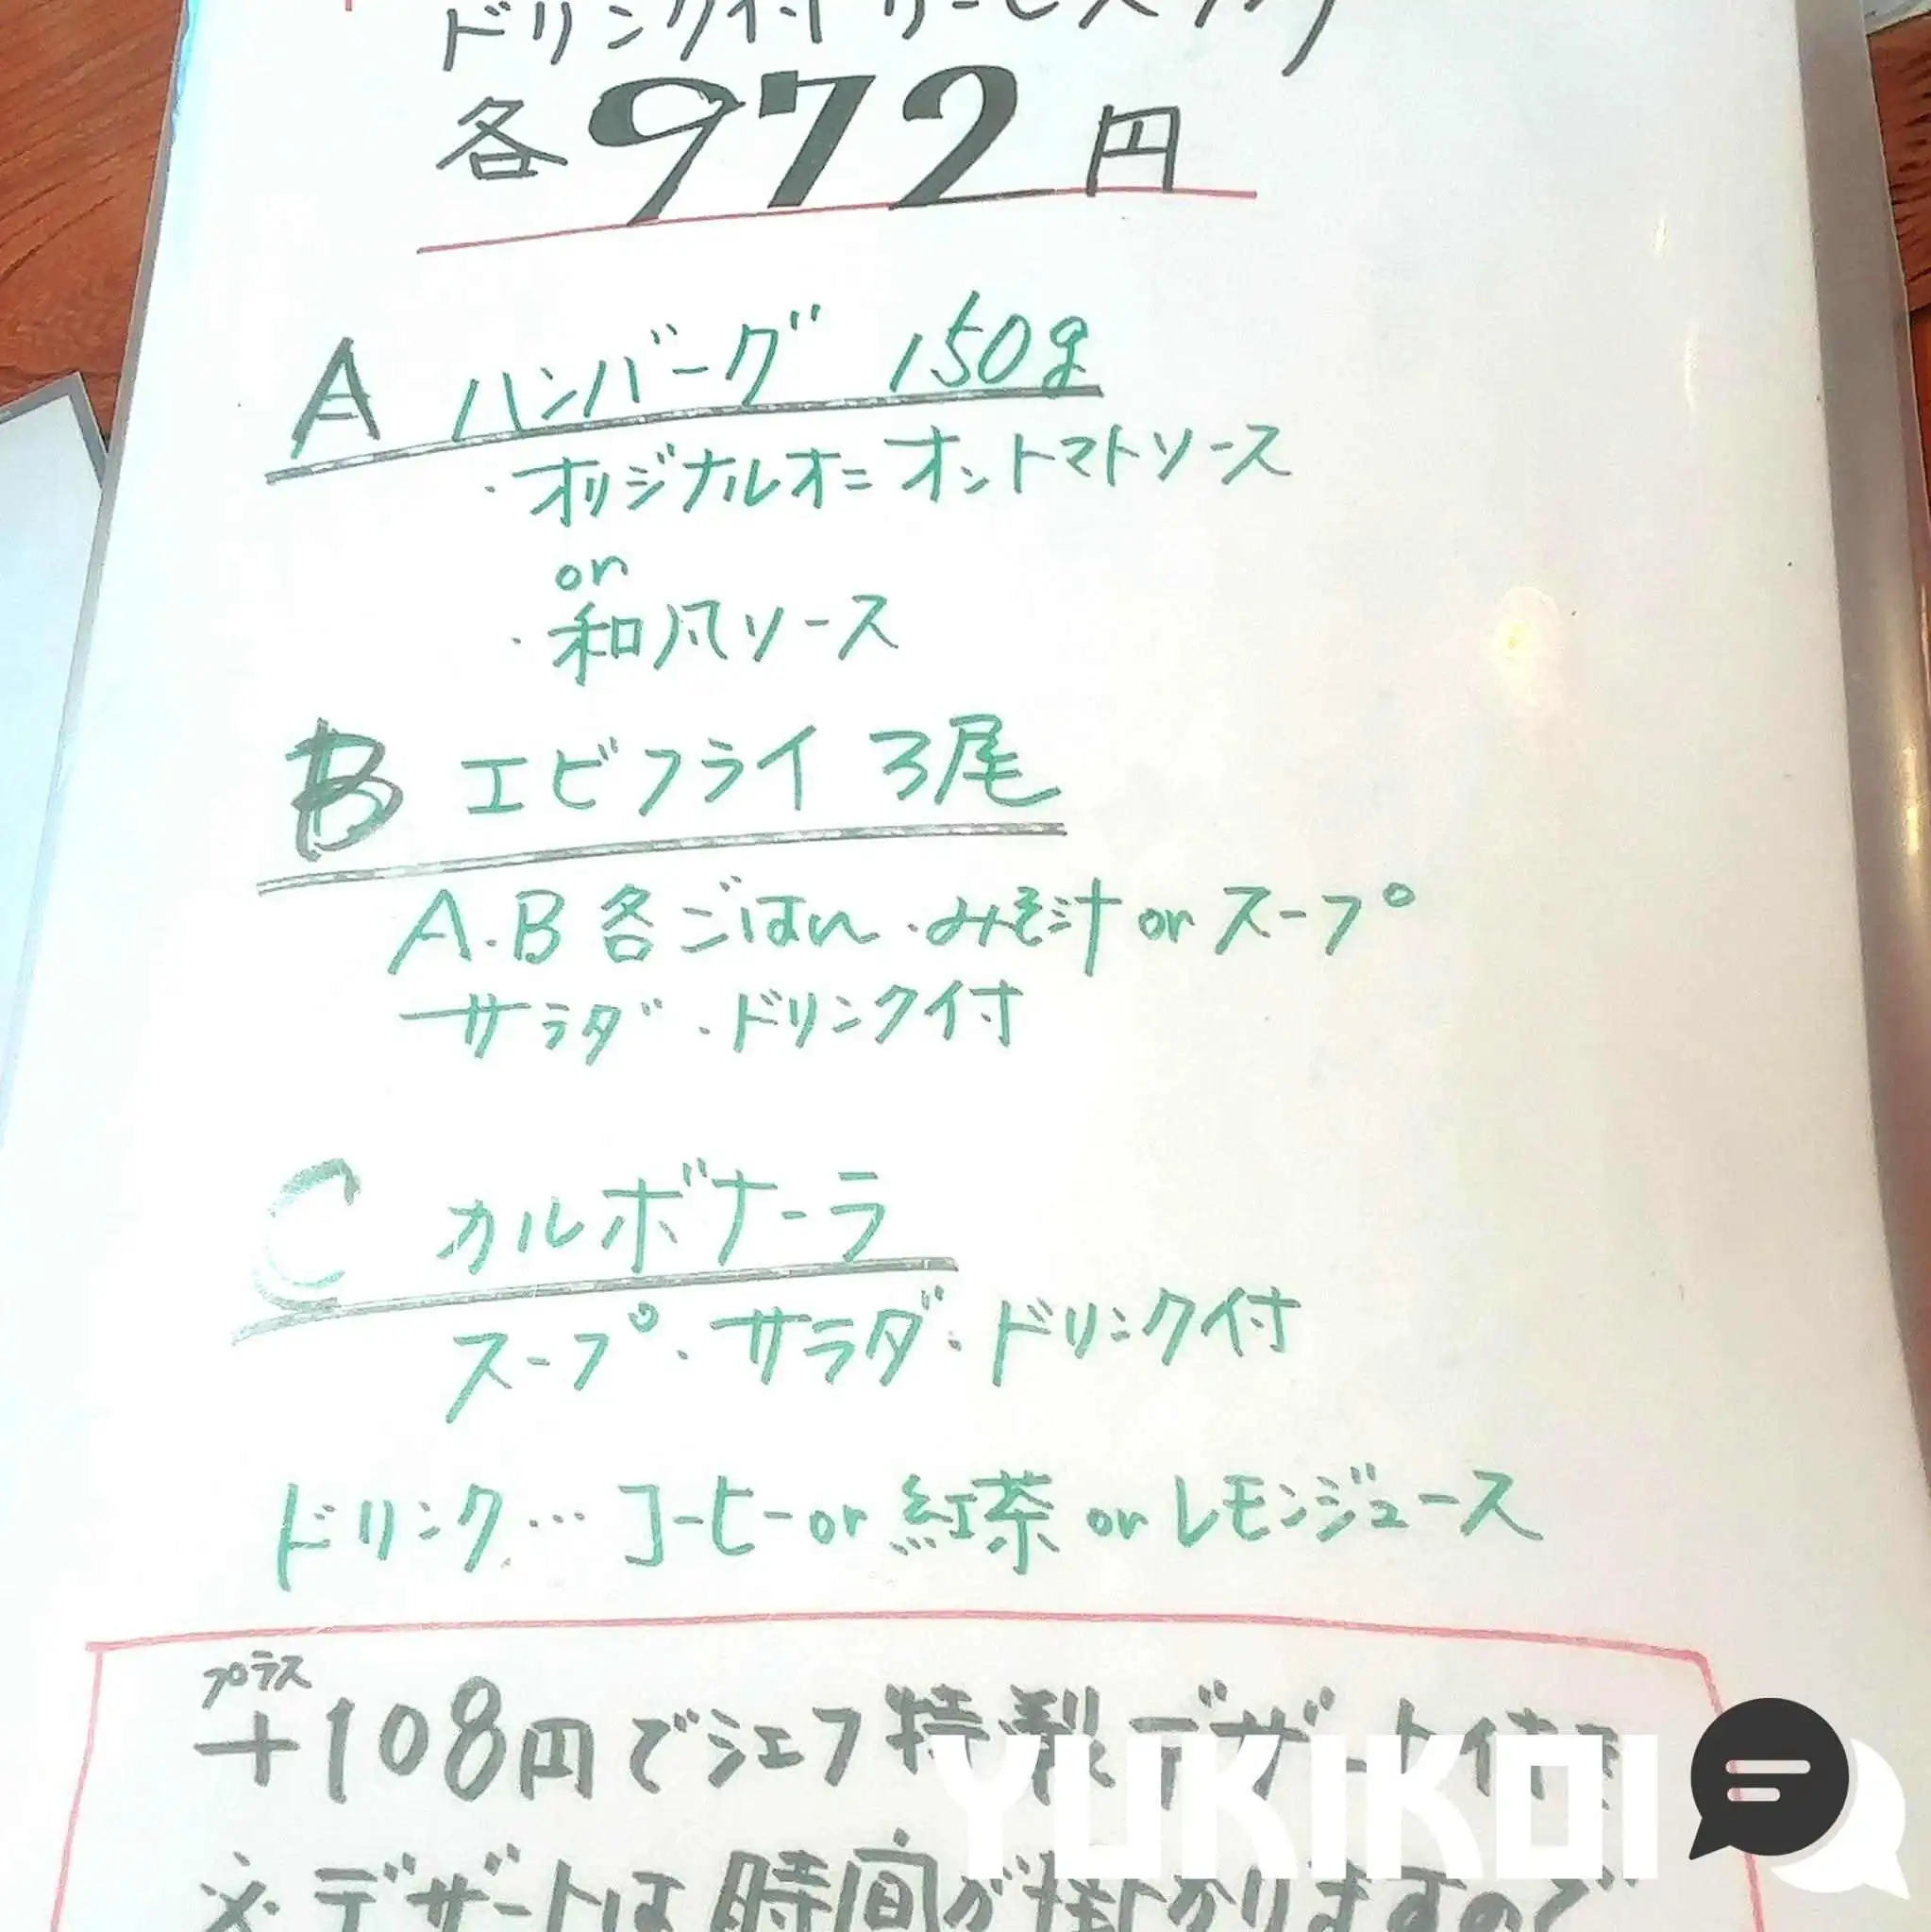 ドリンク付サービスランチ
各972円
A ハンバーグ 150g
・オリジナルオニオントマトソース
or
・和風ソース
B エビフライ 3尾
A.B各ごはん・みそ汁orスープ
サラダ・ドリンク付
C カルボナーラ
スープ・サラダ・ドリンク付
ドリンク…コーヒーor紅茶orレモンジュース
プラス
+108円でシェフ特製デザート付き
※デザートは時間が掛かりますので
YUKIKOI